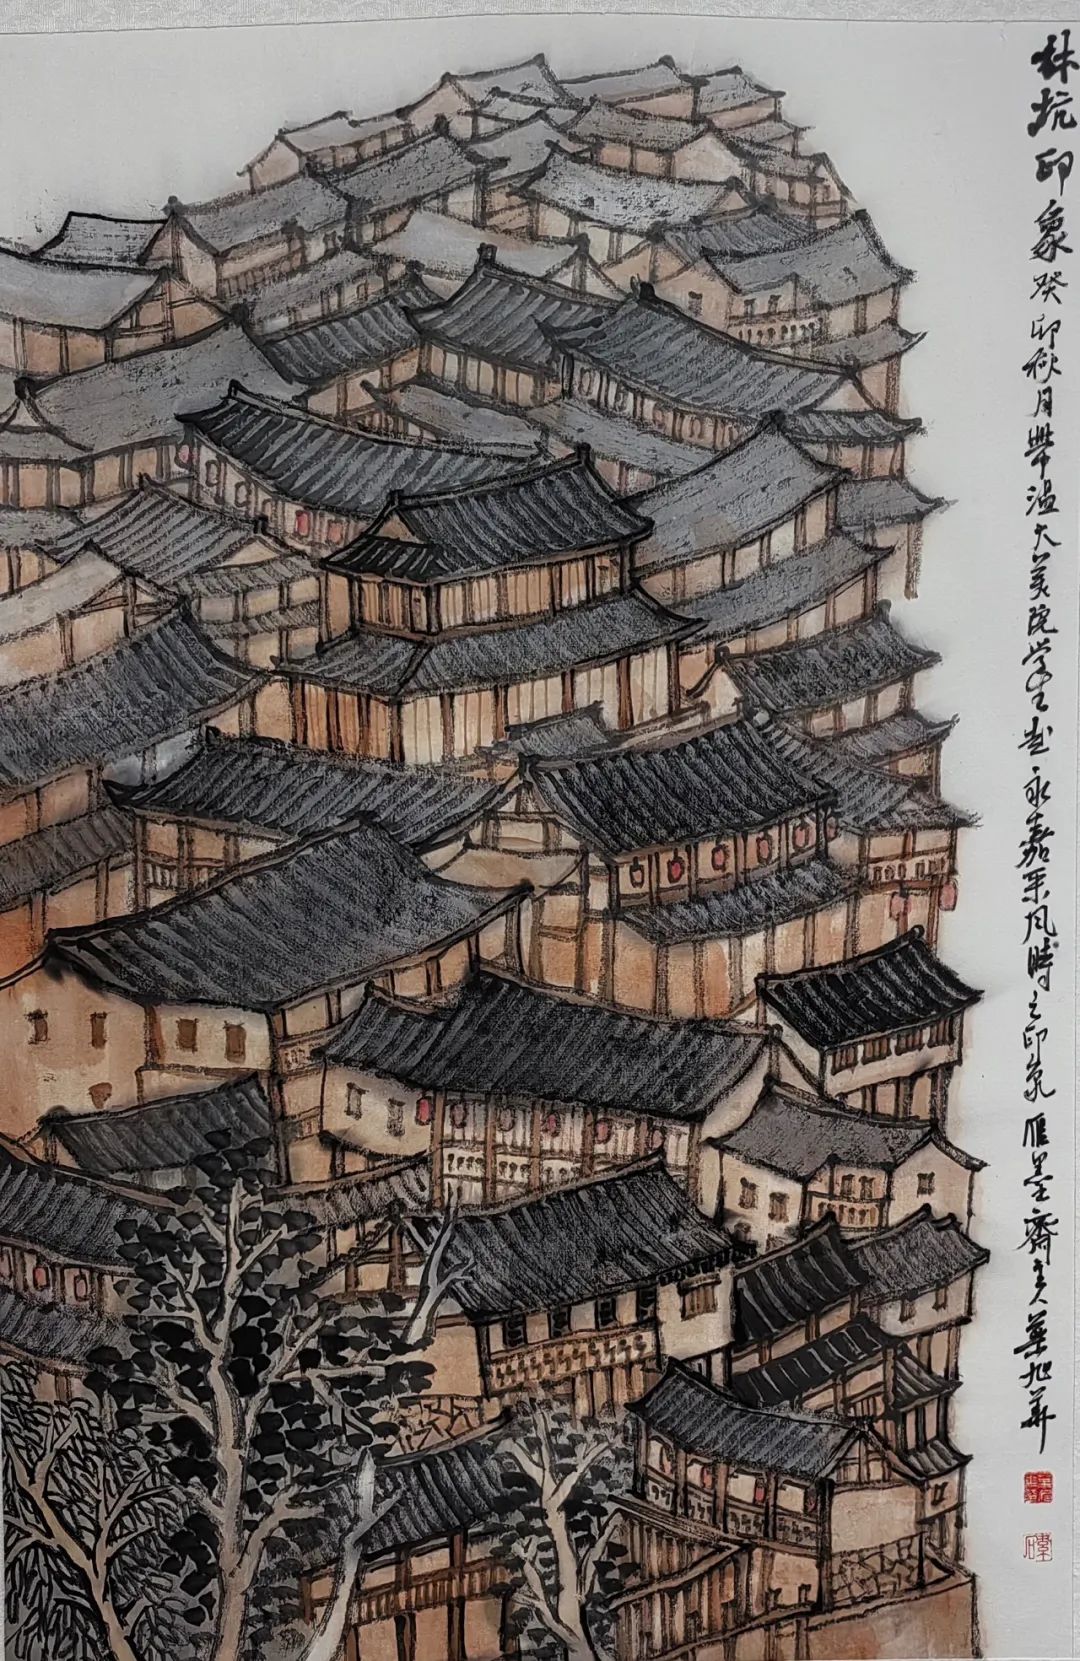 林坑印象 癸卯秋月带温大美院学生赴永嘉采风时之印象 雁墨斋主人叶旭华